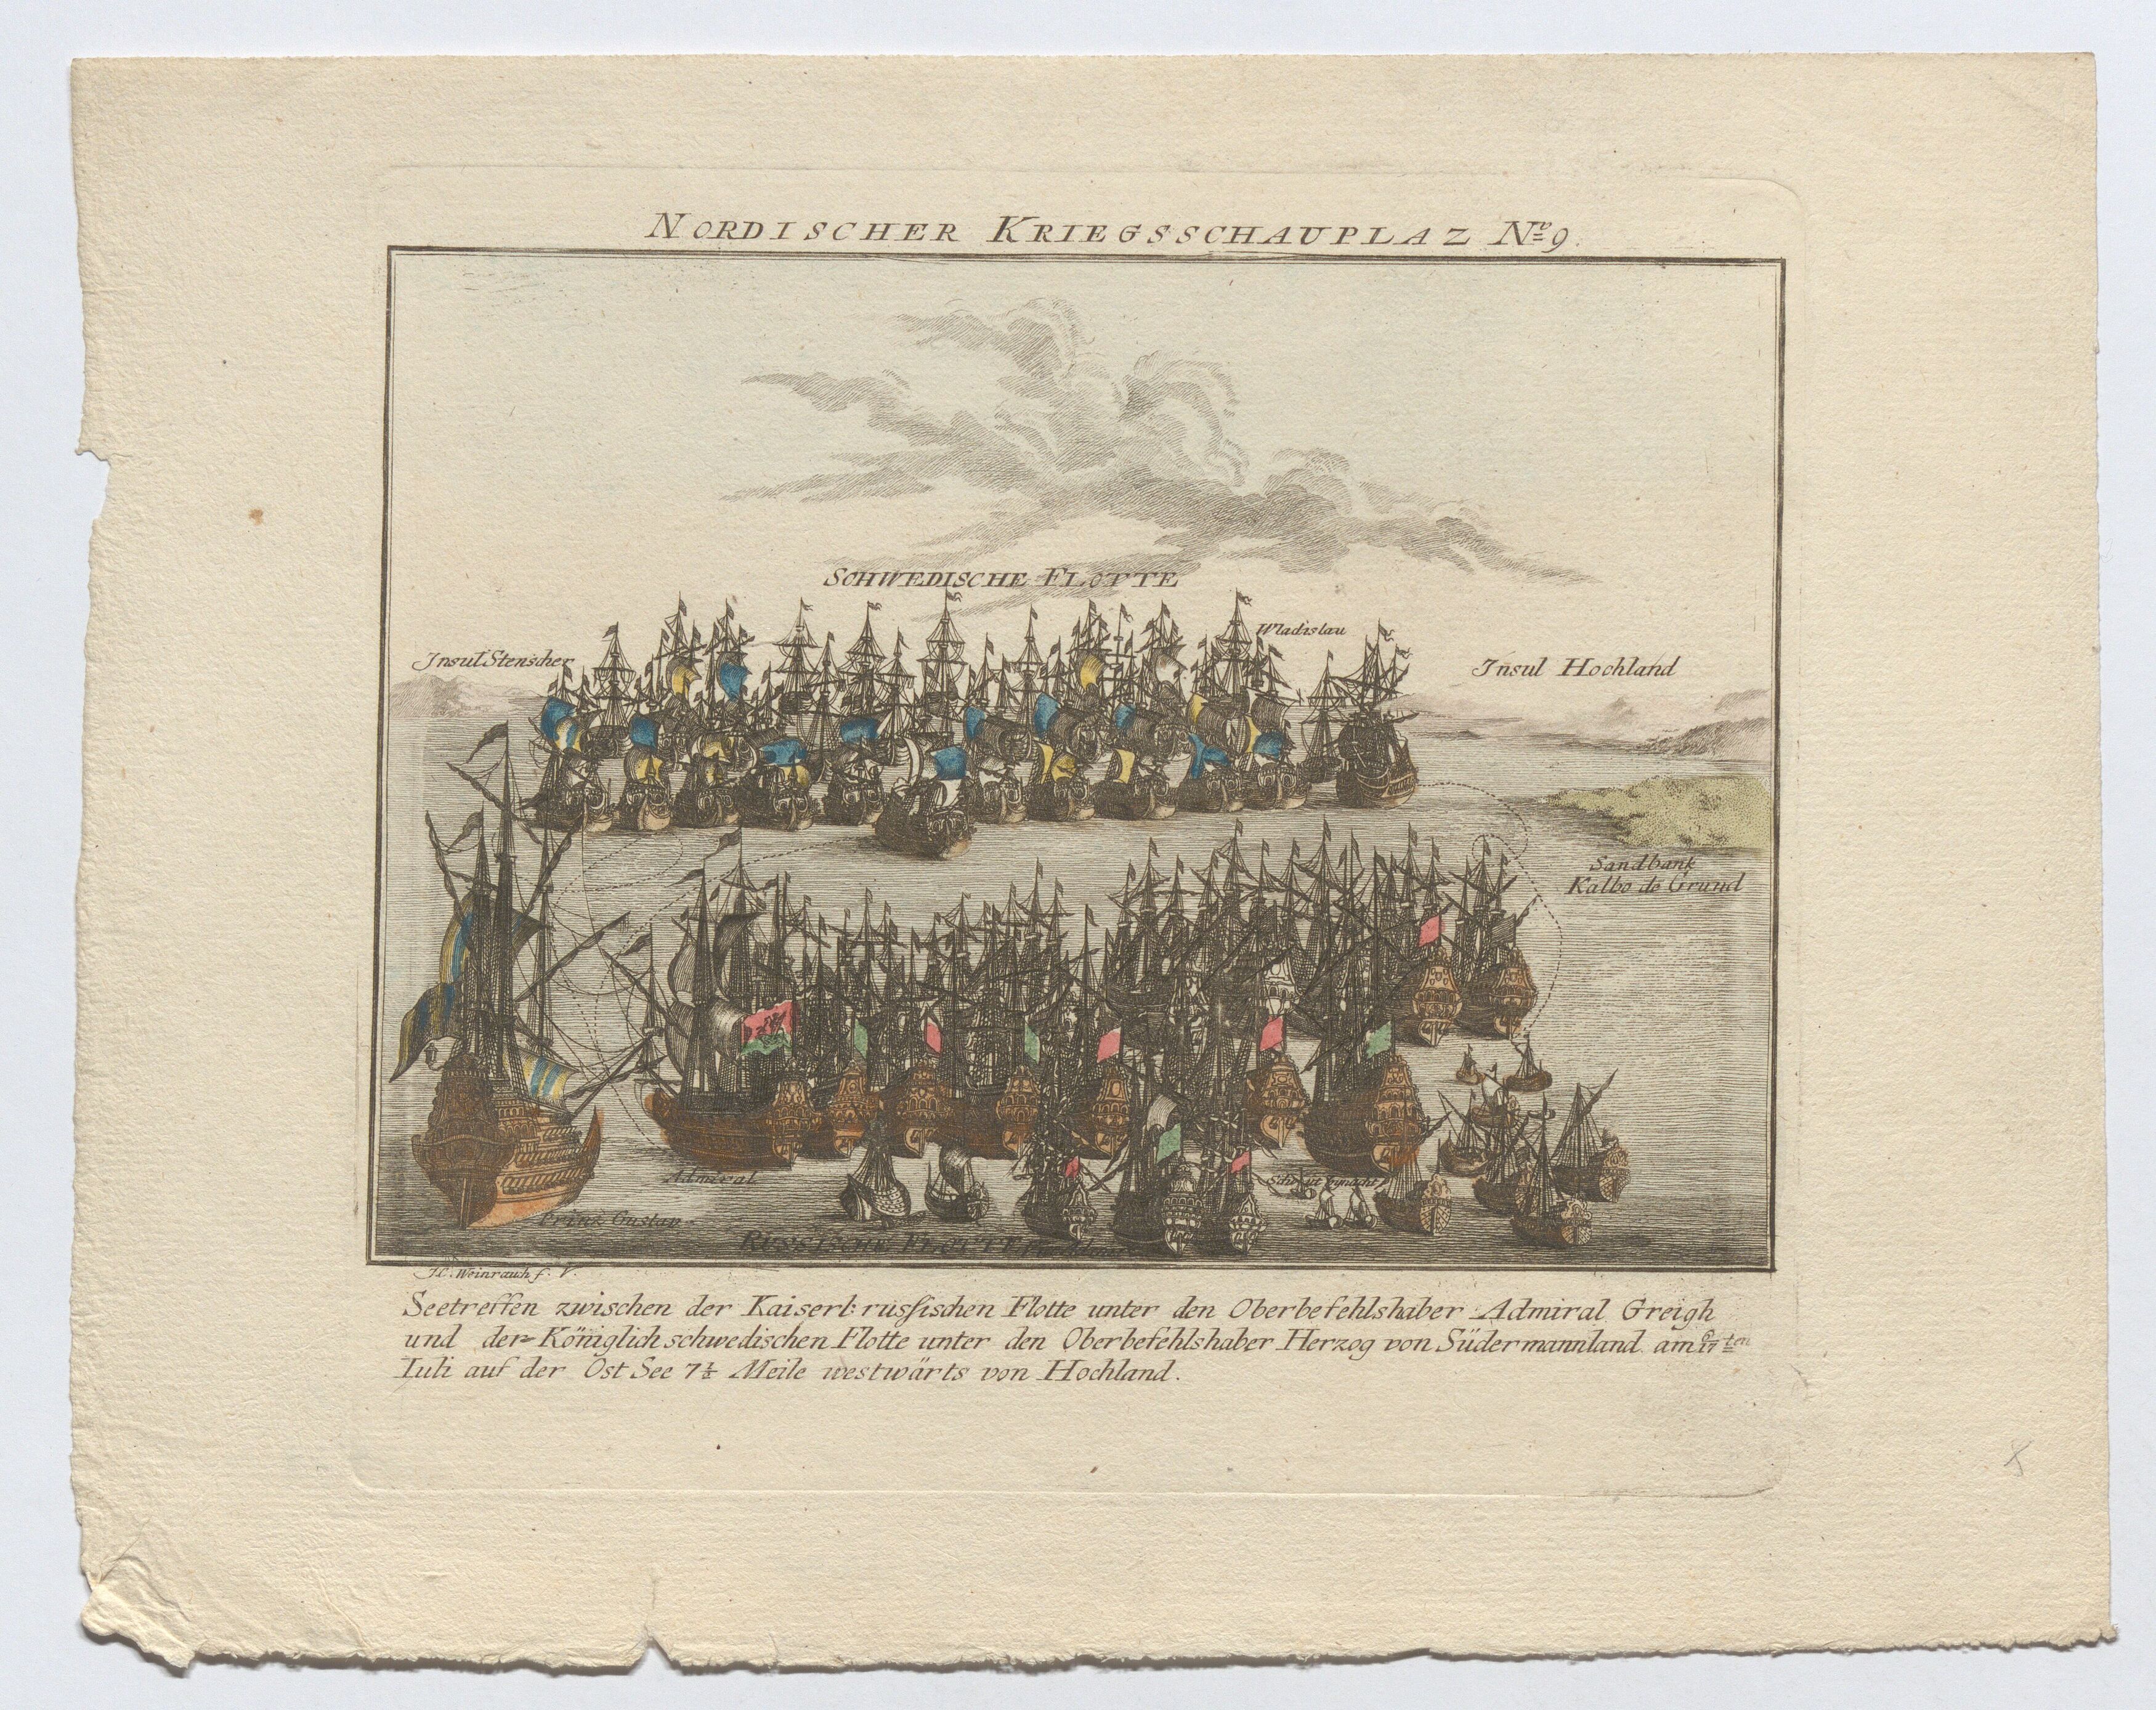 NORDISCHER KRIEGSSCHAUPLAZ No 9.
SCHWEDISCHE FLOTTE
Wladislau
Insul Stenscher
Insul Hochland
Sandbank
Kalbo de Grund
Admiral
Prinz Gustav
RUSSISCHE FLOTTE
J.C. Weinrauch f. V.
Seetreffen zwischen der Kaiserl: russischen Flotte unter den Oberbefehlshaber Admiral Greigh
und der Königlich schwedischen Flotte unter den Oberbefehlshaber Herzog von Südermannland am 6/17ten
Iuli auf der Ost See 7½ Meile westwärts von Hochland.